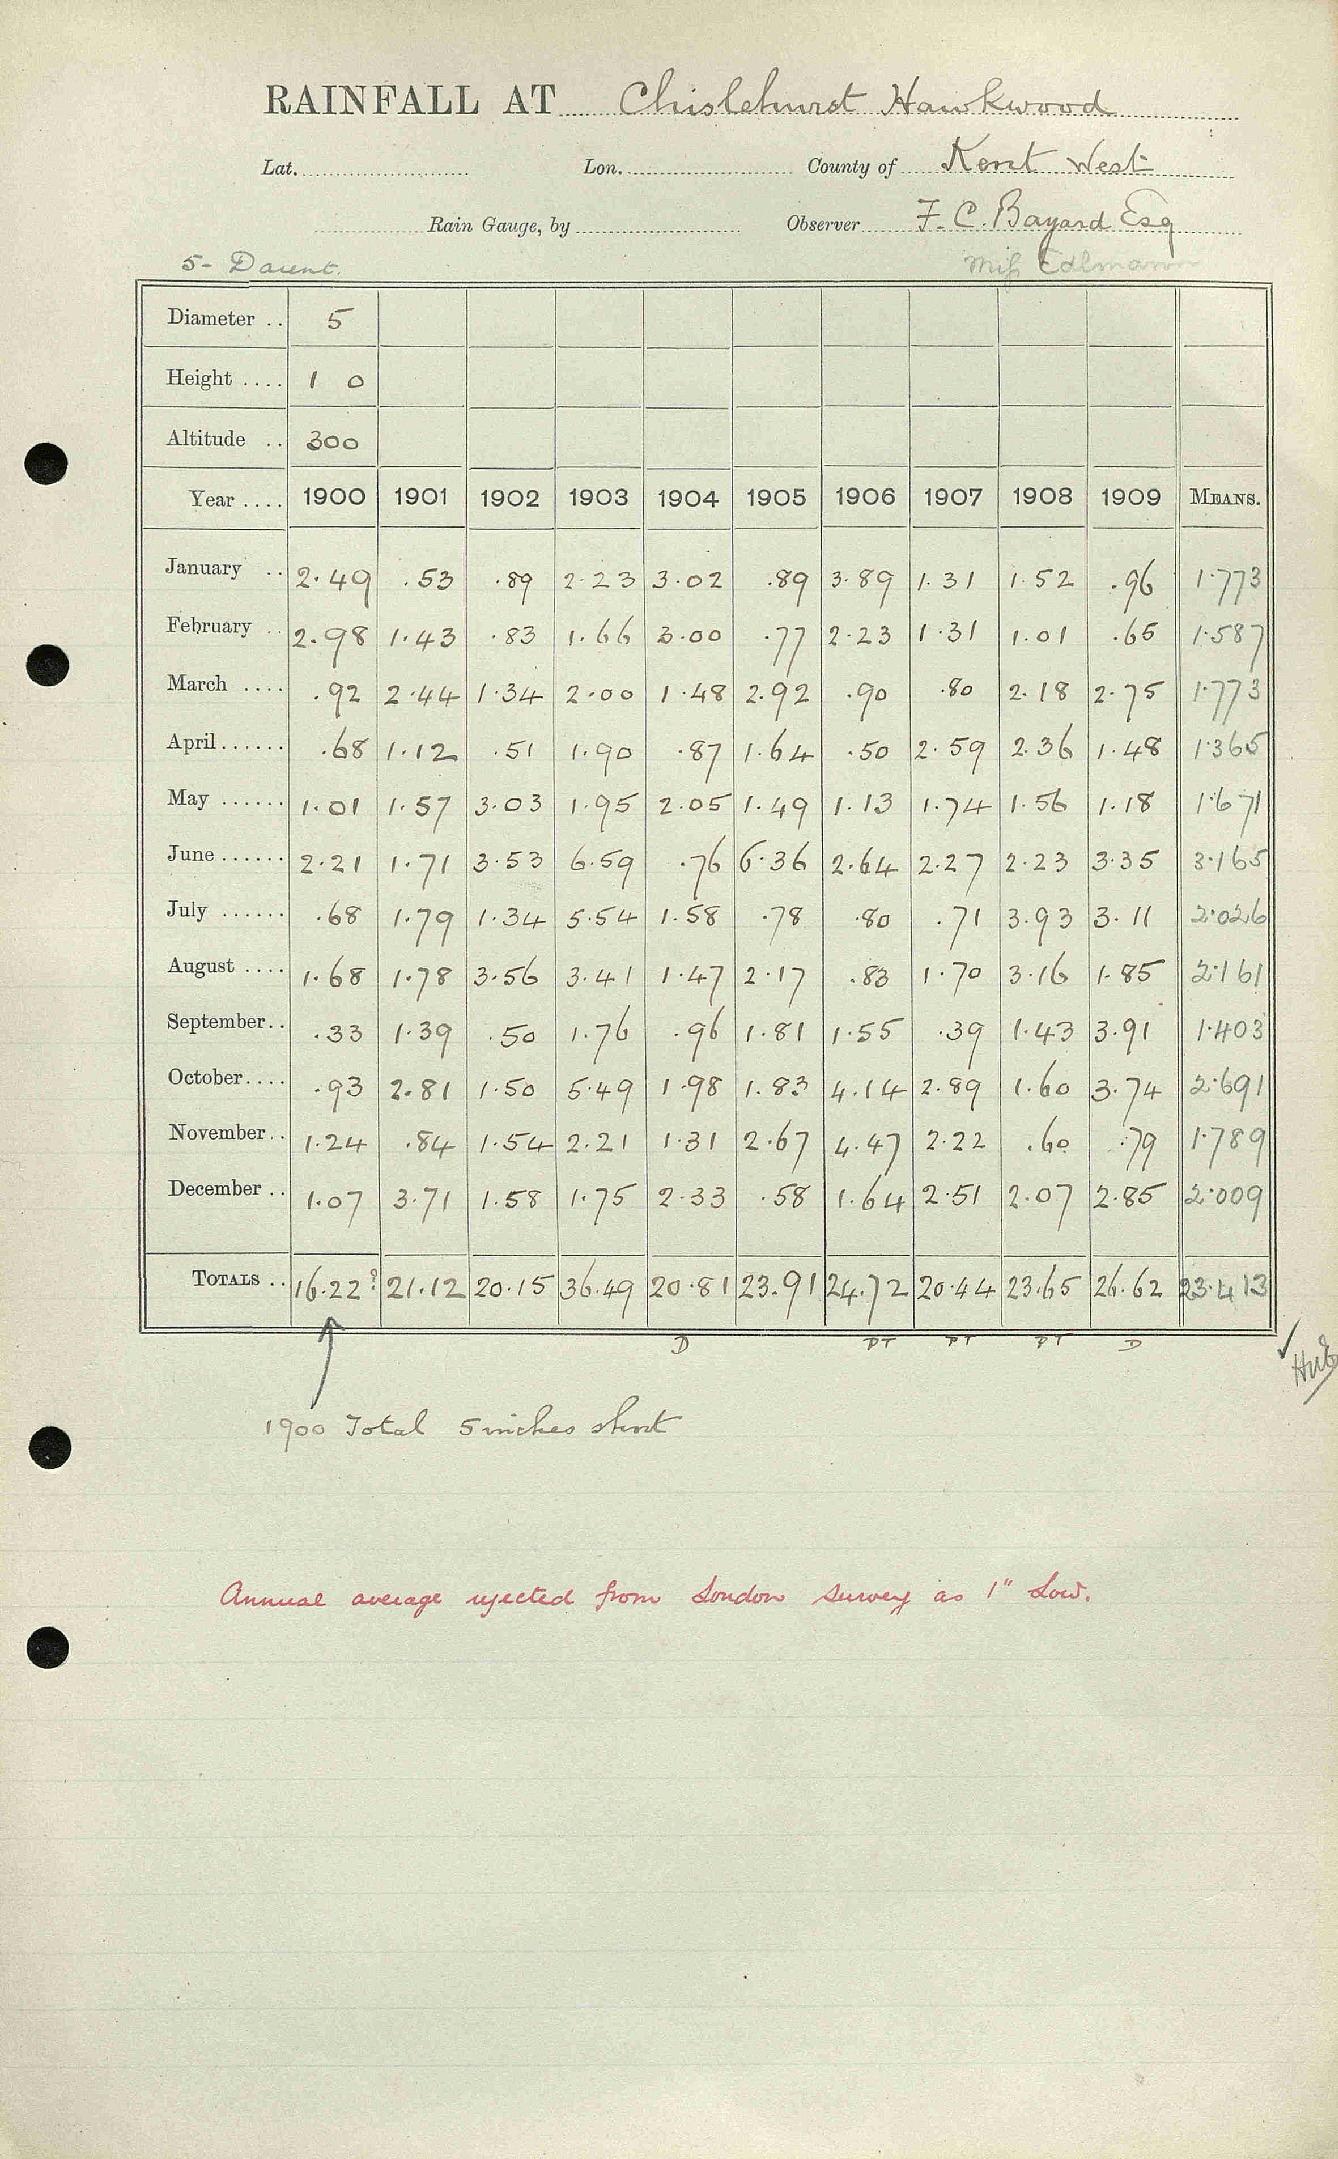 RAINFALL AT Chislehurst Hawkwood
Lat. Lon. County of Kent West
Rain Gauge, by Observer F. C. Bayard Esq
5- Darent. Miss Edlmann
Diameter .. 5
Height .... 1 0
Altitude .. 300
Year .... 1900 1901 1902 1903 1904 1905 1906 1907 1908 1909 MEANS.
January .. 2.49 .53 .89 2.23 3.02 .89 3.89 1.31 1.52 .96 1.773
February .. 2.98 1.43 .83 1.66 3.00 .77 2.23 1.31 1.01 .65 1.587
March .... .92 2.44 1.34 2.00 1.48 2.92 .90 .80 2.18 2.75 1.773
April...... .68 1.12 .51 1.90 .87 1.64 .50 2.59 2.36 1.48 1.365
May ...... 1.01 1.57 3.03 1.95 2.05 1.49 1.13 1.74 1.56 1.18 1.671
June...... 2.21 1.71 3.53 6.59 .76 6.36 2.64 2.27 2.23 3.35 3.165
July ...... .68 1.79 1.34 5.54 1.58 .78 .80 .71 3.93 3.11 2.026
August .... 1.68 1.78 3.56 3.41 1.47 2.17 .83 1.70 3.16 1.85 2.161
September.. .33 1.39 .50 1.76 .96 1.81 1.55 .39 1.43 3.91 1.403
October.... .93 2.81 1.50 5.49 1.98 1.83 4.14 2.89 1.60 3.74 2.691
November.. 1.24 .84 1.54 2.21 1.31 2.67 4.47 2.22 .60 .79 1.789
December .. 1.07 3.71 1.58 1.75 2.33 .58 1.64 2.51 2.07 2.85 2.009
TOTALS .. 16.22? 21.12 20.15 36.49 20.81 23.91 24.72 20.44 23.65 26.62 23.413
D PT PT PT D
1900 Total 5 inches short
Annual average rejected from London Survey as 1" Low.